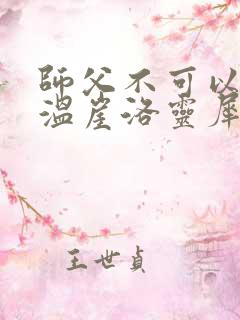 師父不可以
溫崖洛靈犀
王世貞